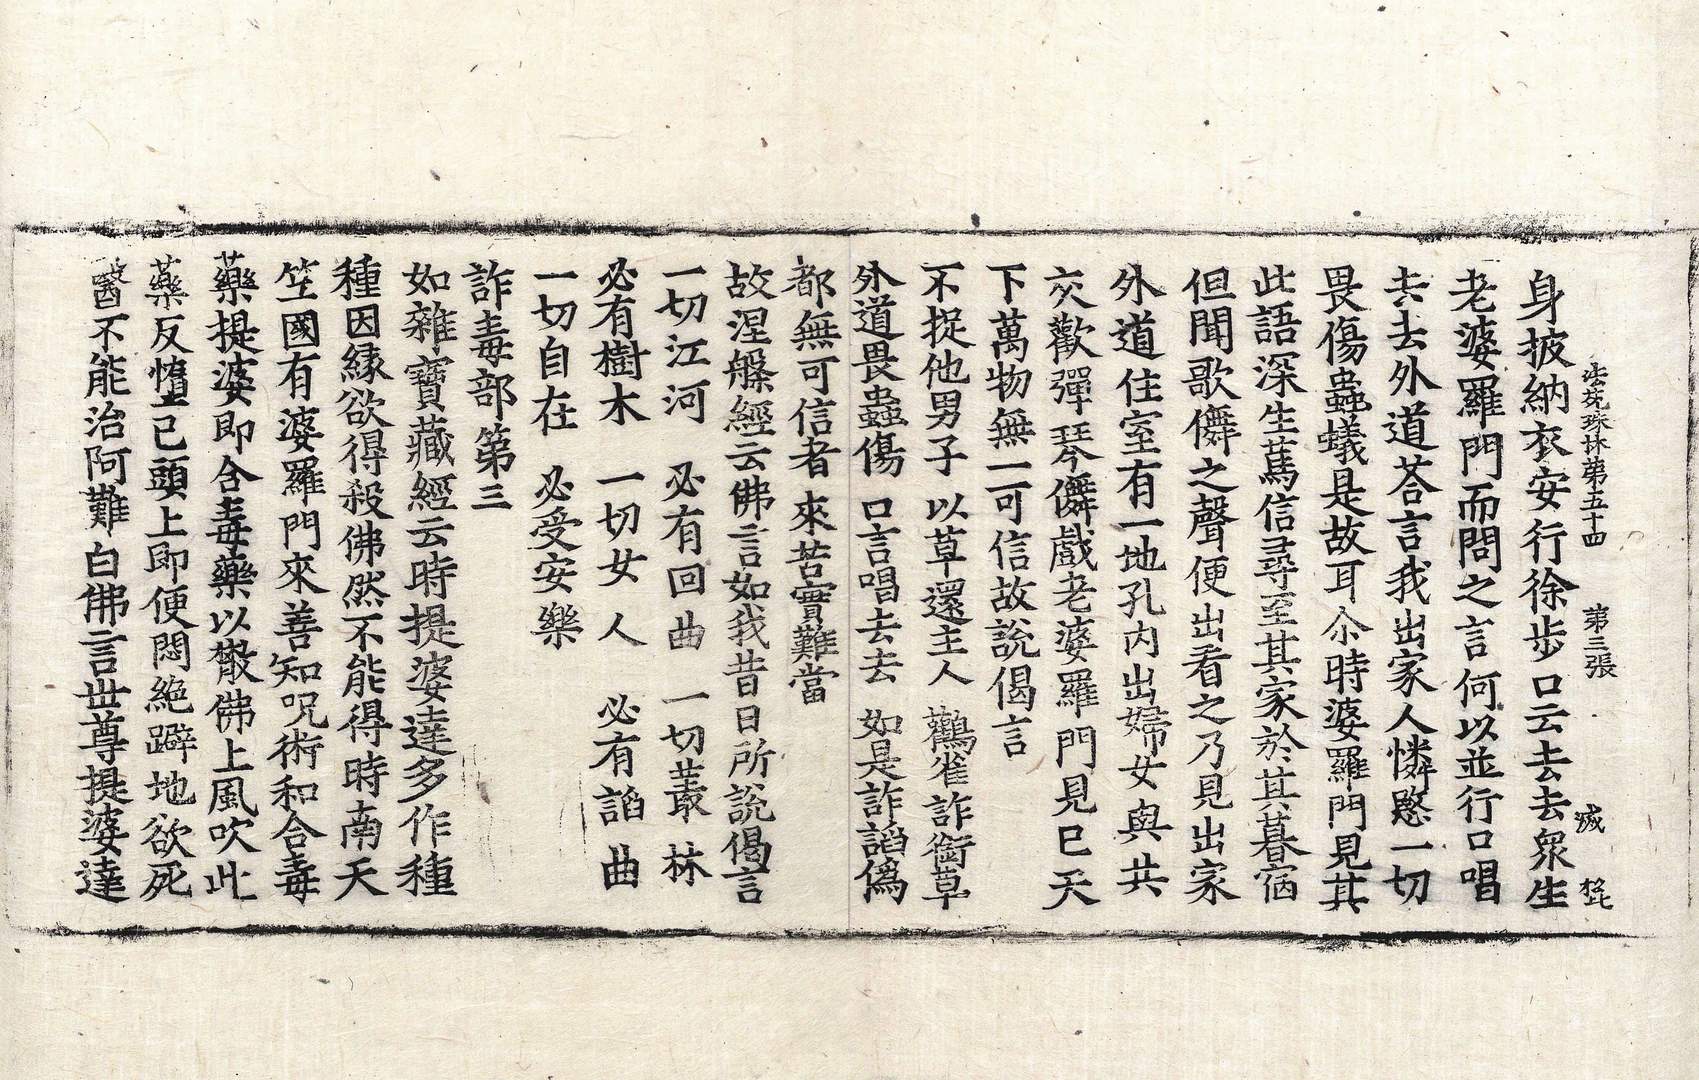 法苑珠林第五十四 第三張 滅
身披納衣安行徐步口云去去衆生
老婆羅門而問之言何以並行口唱
去去外道荅言我出家人憐愍一切
畏傷蟲蟻是故耳尒時婆羅門見其
此語深生篤信尋至其家於其暮宿
但聞歌儛之聲便出看之乃見出家
外道住室有一地孔内出婦女與共
交歡彈琴儛戲老婆羅門見已天
下萬物無一可信故說偈言
不捉他男子 以草還主人 鸛雀詐銜草
外道畏蟲傷 口言唱去去 如是詐謟僞
都無可信者 來苦實難當
故涅槃經云佛言如我昔日所說偈言
一切江河 必有回曲 一切叢林
必有樹木 一切女人 必有謟曲
一切自在 必受安樂
詐毒部第三
如雜寶藏經云時提婆達多作種
種因緣欲得殺佛然不能得時南天
竺國有婆羅門來善知呪術和合毒
藥提婆即合毒藥以散佛上風吹此
藥反墮己頭上即便悶絕躃地欲死
醫不能治阿難白佛言世尊提婆達